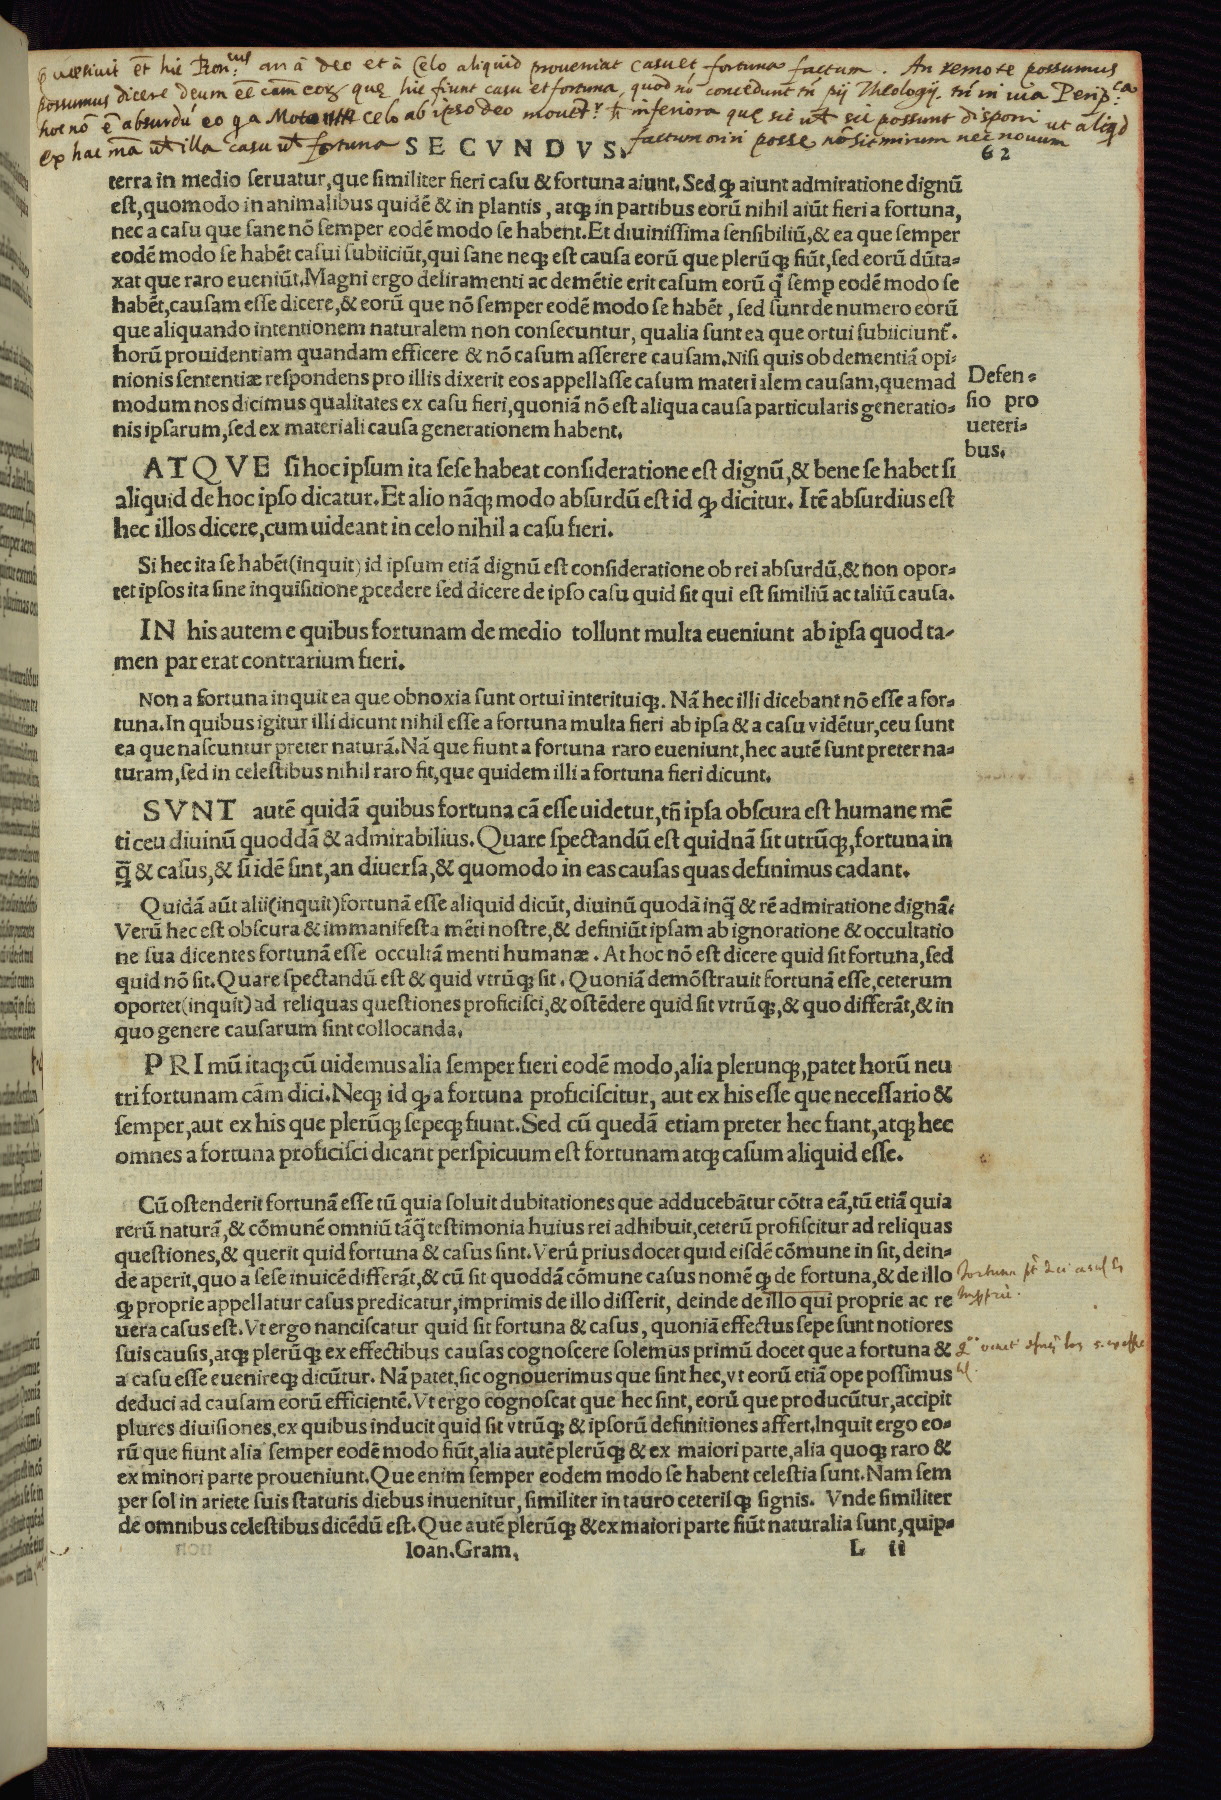 quæsivit et hic an ā deo et ā Celo aliquid proveniat casu et fortuna factum. An remote possumus
possumus dicere deum eē cām eorum que hic fiunt casu et fortuna, quod nō concedunt tñ pij Theologij. tñ in via Perip.ca
hoc nō ē absurdū eo qa Moto celo ab ipso deo inferiora que sic possunt disponi ut aliqd
ex hac mā illa casu fortuna factum oriri posse nō sit mirum nec novum
SECVNDVS. 62
terra in medio seruatur,que similiter fieri casu & fortuna aiunt. Sed ꝙ aiunt admiratione dignū
est,quomodo in animalibus quidē & in plantis, atqꝫ in partibus eorū nihil aiūt fieri a fortuna,
nec a casu que sane nō semper eodē modo se habent. Et diuinissima sensibiliū,& ea que semper
eodē modo se habēt casui subiiciūt,qui sane neqꝫ est causa eorū que plerūqꝫ fiūt,sed eorū dūta-
xat que raro eueniūt. Magni ergo deliramenti ac demētie erit casum eorū q̄ semꝑ eodē modo se
habēt,causam esse dicere,& eorū que nō semper eodē modo se habēt, sed sunt de numero eorū
que aliquando intentionem naturalem non consecuntur, qualia sunt ea que ortui subiiciunt̄.
horū prouidentiam quandam efficere & nō casum asserere causam. Nisi quis ob dementiā opi-
nionis sententiæ respondens pro illis dixerit eos appellasse casum materialem causam,quemad
modum nos dicimus qualitates ex casu fieri,quoniā nō est aliqua causa particularis generatio-
nis ipsarum,sed ex materiali causa generationem habent.
Defen-
sio pro
ueteri-
bus.
ATQVE si hoc ipsum ita sese habeat consideratione est dignū,& bene se habet si
aliquid de hoc ipso dicatur. Et alio nāqꝫ modo absurdū est id ꝙ dicitur. Itē absurdius est
hec illos dicere,cum uideant in celo nihil a casu fieri.
Si hec ita se habēt(inquit) id ipsum etiā dignū est consideratione ob rei absurdū,& non opor-
tet ipsos ita sine inquisitione ꝓcedere sed dicere de ipso casu quid sit qui est similiū ac taliū causa.
IN his autem e quibus fortunam de medio tollunt multa eueniunt ab ipsa quod ta-
men par erat contrarium fieri.
Non a fortuna inquit ea que obnoxia sunt ortui interituiqꝫ. Nā hec illi dicebant nō esse a for-
tuna. In quibus igitur illi dicunt nihil esse a fortuna multa fieri ab ipsa & a casu vidētur,ceu sunt
ea que nascuntur preter naturā. Nā que fiunt a fortuna raro eueniunt,hec autē sunt preter na-
turam,sed in celestibus nihil raro fit,que quidem illi a fortuna fieri dicunt.
SVNT autē quidā quibus fortuna cā esse uidetur,tñ ipsa obscura est humane mē
ti ceu diuinū quoddā & admirabilius. Quare spectandū est quidnā sit utrūqꝫ,fortuna in
q̄ & casus,& si idē sint,an diuersa,& quomodo in eas causas quas definimus cadant.
Quidā aūt alii(inquit)fortunā esse aliquid dicūt, diuinū quodā inq̄ & rē admiratione dignā:
Verū hec est obscura & immanifesta mēti nostre,& definiūt ipsam ab ignoratione & occultatio
ne sua dicentes fortunā esse occultā menti humanæ. At hoc nō est dicere quid sit fortuna,sed
quid nō sit. Quare spectandū est & quid vtrūqꝫ sit. Quoniā demōstrauit fortunā esse,ceterum
oportet(inquit)ad reliquas questiones proficisci,& ostēdere quid sit vtrūqꝫ,& quo differāt,& in
quo genere causarum sint collocanda.
PRImū itaqꝫ cū uidemus alia semper fieri eodē modo,alia plerunqꝫ,patet horū neu
tri fortunam cām dici. Neqꝫ id ꝙ a fortuna proficiscitur, aut ex his esse que necessario &
semper,aut ex his que plerūqꝫ sepeqꝫ fiunt. Sed cū quedā etiam preter hec fiant,atqꝫ hec
omnes a fortuna proficisci dicant perspicuum est fortunam atqꝫ casum aliquid esse.
Cū ostenderit fortunā esse tū quia soluit dubitationes que adducebātur cōtra eā,tū etiā quia
rerū naturā,& cōmunē omniū tāq̄ testimonia huius rei adhibuit,ceterū profiscitur ad reliquas
questiones,& querit quid fortuna & casus sint. Verū prius docet quid eisdē cōmune in sit, dein-
de aperit,quo a sese inuicē differāt,& cū sit quoddā cōmune casus nomē ꝙ de fortuna,& de illo
ꝙ proprie appellatur casus predicatur,imprimis de illo disserit, deinde de illo qui proprie ac re
uera casus est. Vt ergo nanciscatur quid sit fortuna & casus, quoniā effectus sepe sunt notiores
suis causis,atqꝫ plerūqꝫ ex effectibus causas cognoscere solemus primū docet que a fortuna &
a casu esse euenireqꝫ dicūtur. Nā patet,sic ognouerimus que sint hec,vt eorū etiā ope possimus
deduci ad causam eorū efficientē. Vt ergo cognoscat que hec sint, eorū que producūtur,accipit
plures diuisiones,ex quibus inducit quid sit vtrūqꝫ & ipsorū definitiones affert. Inquit ergo eo-
rū que fiunt alia semper eodē modo fiūt,alia autē plerūqꝫ & ex maiori parte,alia quoqꝫ raro &
ex minori parte proueniunt. Que enim semper eodem modo se habent celestia sunt. Nam sem
per sol in ariete suis statutis diebus inuenitur, similiter in tauro ceterisqꝫ signis. Vnde similiter
de omnibus celestibus dicēdū est. Que autē plerūqꝫ & ex maiori parte fiūt naturalia sunt,quip-
fortuna casus
Ioan.Gram. L ii